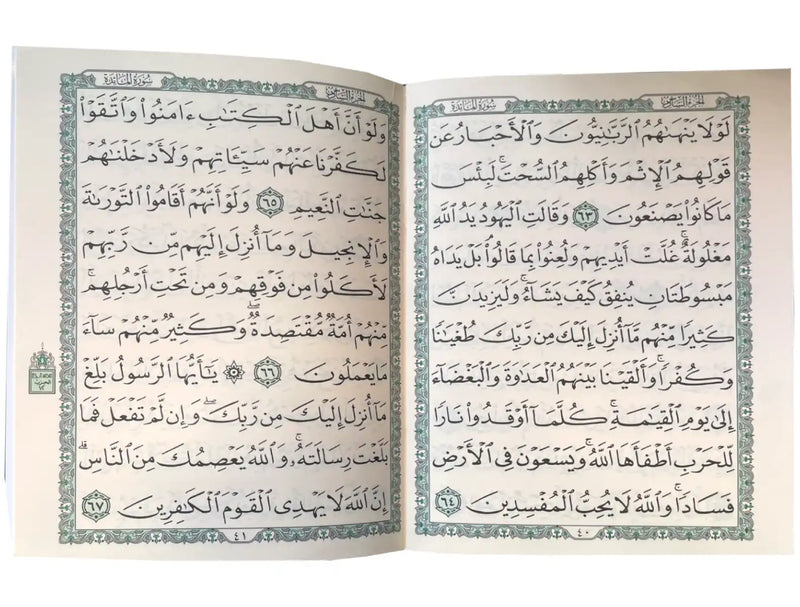 سورة المائدة
الجزء السادس
لَوْلَا يَنْهَىٰهُمُ ٱلرَّبَّٰنِيُّونَ وَٱلْأَحْبَارُ عَن
قَوْلِهِمُ ٱلْإِثْمَ وَأَكْلِهِمُ ٱلسُّحْتَ ۚ لَبِئْسَ
مَا كَانُوا۟ يَصْنَعُونَ ٦٣ وَقَالَتِ ٱلْيَهُودُ يَدُ ٱللَّهِ
مَغْلُولَةٌ ۚ غُلَّتْ أَيْدِيهِمْ وَلُعِنُوا۟ بِمَا قَالُوا۟ ۘ بَلْ يَدَاهُ
مَبْسُوطَتَانِ يُنفِقُ كَيْفَ يَشَآءُ ۚ وَلَيَزِيدَنَّ
كَثِيرًا مِّنْهُم مَّآ أُنزِلَ إِلَيْكَ مِن رَّبِّكَ طُغْيَٰنًا
وَكُفْرًا ۚ وَأَلْقَيْنَا بَيْنَهُمُ ٱلْعَدَٰوَةَ وَٱلْبَغْضَآءَ
إِلَىٰ يَوْمِ ٱلْقِيَٰمَةِ ۚ كُلَّمَآ أَوْقَدُوا۟ نَارًا
لِّلْحَرْبِ أَطْفَأَهَا ٱللَّهُ ۚ وَيَسْعَوْنَ فِى ٱلْأَرْضِ
فَسَادًا ۚ وَٱللَّهُ لَا يُحِبُّ ٱلْمُفْسِدِينَ ٦٤
٤٠
سورة المائدة
الجزء السادس
وَلَوْ أَنَّ أَهْلَ ٱلْكِتَٰبِ ءَامَنُوا۟ وَٱتَّقَوْا۟
لَكَفَّرْنَا عَنْهُمْ سَيِّـَٔاتِهِمْ وَلَأَدْخَلْنَٰهُمْ
جَنَّٰتِ ٱلنَّعِيمِ ٦٥ وَلَوْ أَنَّهُمْ أَقَامُوا۟ ٱلتَّوْرَىٰةَ
وَٱلْإِنجِيلَ وَمَآ أُنزِلَ إِلَيْهِم مِّن رَّبِّهِمْ
لَأَكَلُوا۟ مِن فَوْقِهِمْ وَمِن تَحْتِ أَرْجُلِهِم ۚ
مِّنْهُمْ أُمَّةٌ مُّقْتَصِدَةٌ ۖ وَكَثِيرٌ مِّنْهُمْ سَآءَ
مَا يَعْمَلُونَ ٦٦ ۞ يَٰٓأَيُّهَا ٱلرَّسُولُ بَلِّغْ
مَآ أُنزِلَ إِلَيْكَ مِن رَّبِّكَ ۖ وَإِن لَّمْ تَفْعَلْ فَمَا
بَلَّغْتَ رِسَالَتَهُۥ ۚ وَٱللَّهُ يَعْصِمُكَ مِنَ ٱلنَّاسِ ۗ
إِنَّ ٱللَّهَ لَا يَهْدِى ٱلْقَوْمَ ٱلْكَٰفِرِينَ ٦٧
٤١